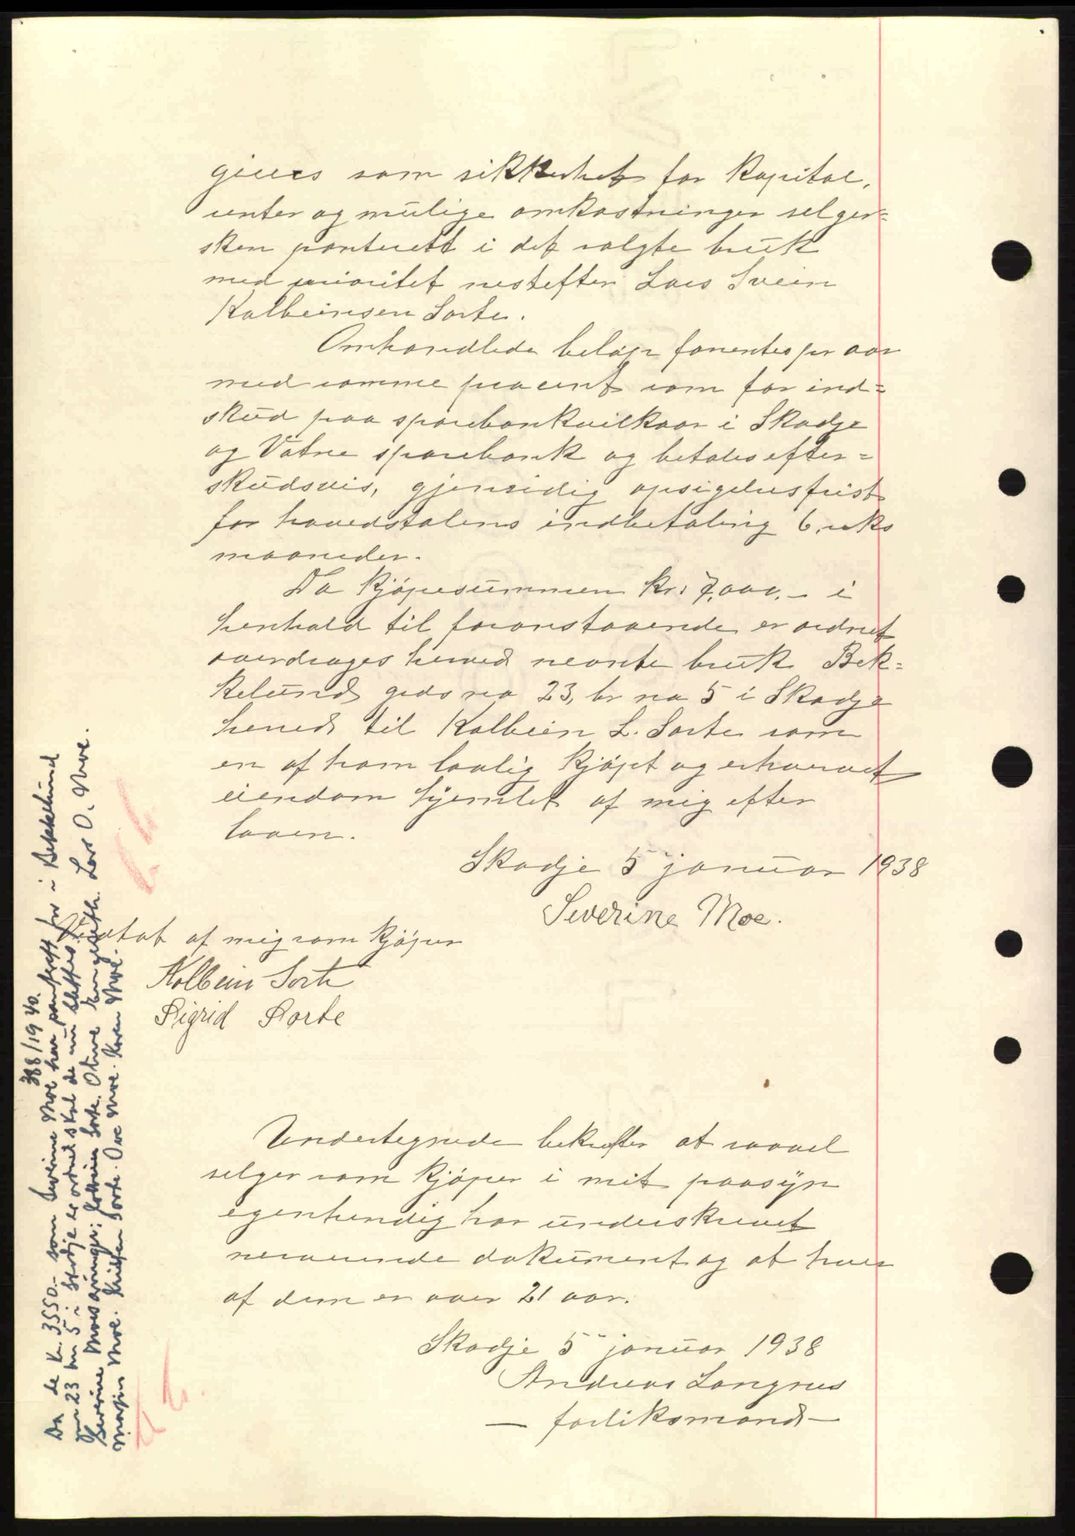 gives som sikkerhet for kapital,
renter og mulige omkostninger selger=
sken panterett i det solgte bruk
med prioritet nestefter Lars Svein
Kolbeinsen Sorte.
Omhandlede beløp forrentes pr aar
med samme procent som for ind=
skud paa sparebankvilkaar i Skodje
og Vatne sparebank og betales efter=
skudsvis, gjensidig opsigelsesfrist
for hovedstolens indbetaling 6, seks
maaneder.
Da kjøpesummen kr: 7,000.- i
henhold til foranstaaende er ordnet
overdrages herved nevnte bruk Bek=
kelund gads no 23, br no 5 i Skodje
herred til Kolbein L. Sorte som
en af ham lovlig kjøpt og erhvervet
eiendom hjemlet af mig efter
loven.
Skodje 5 januar 1938
Severine Moe.
Vedtat af mig som kjøper
Kolbein Sorte
Sigrid Sorte
Undertegnede bekrefter at saavel
selger som kjøper i mit paasyn
egenhendig har underskrevet
nerverende dokument og at hver
af dem er over 21 aar.
Skodje 5 januar 1938
Andreas Langnes
— forliksmand —
388/1940.
Da de kr. 3550.- som Severine Moe har panterett for i Bekkelund
gnr 23 bnr 5 i Skodje er ordnet skal de nu slettes.
Severine Moes arvinger: Kolbein Sorte. Oline Lars O. Moe.
Moe. Sorte. Ove Moe. Karen Moe.